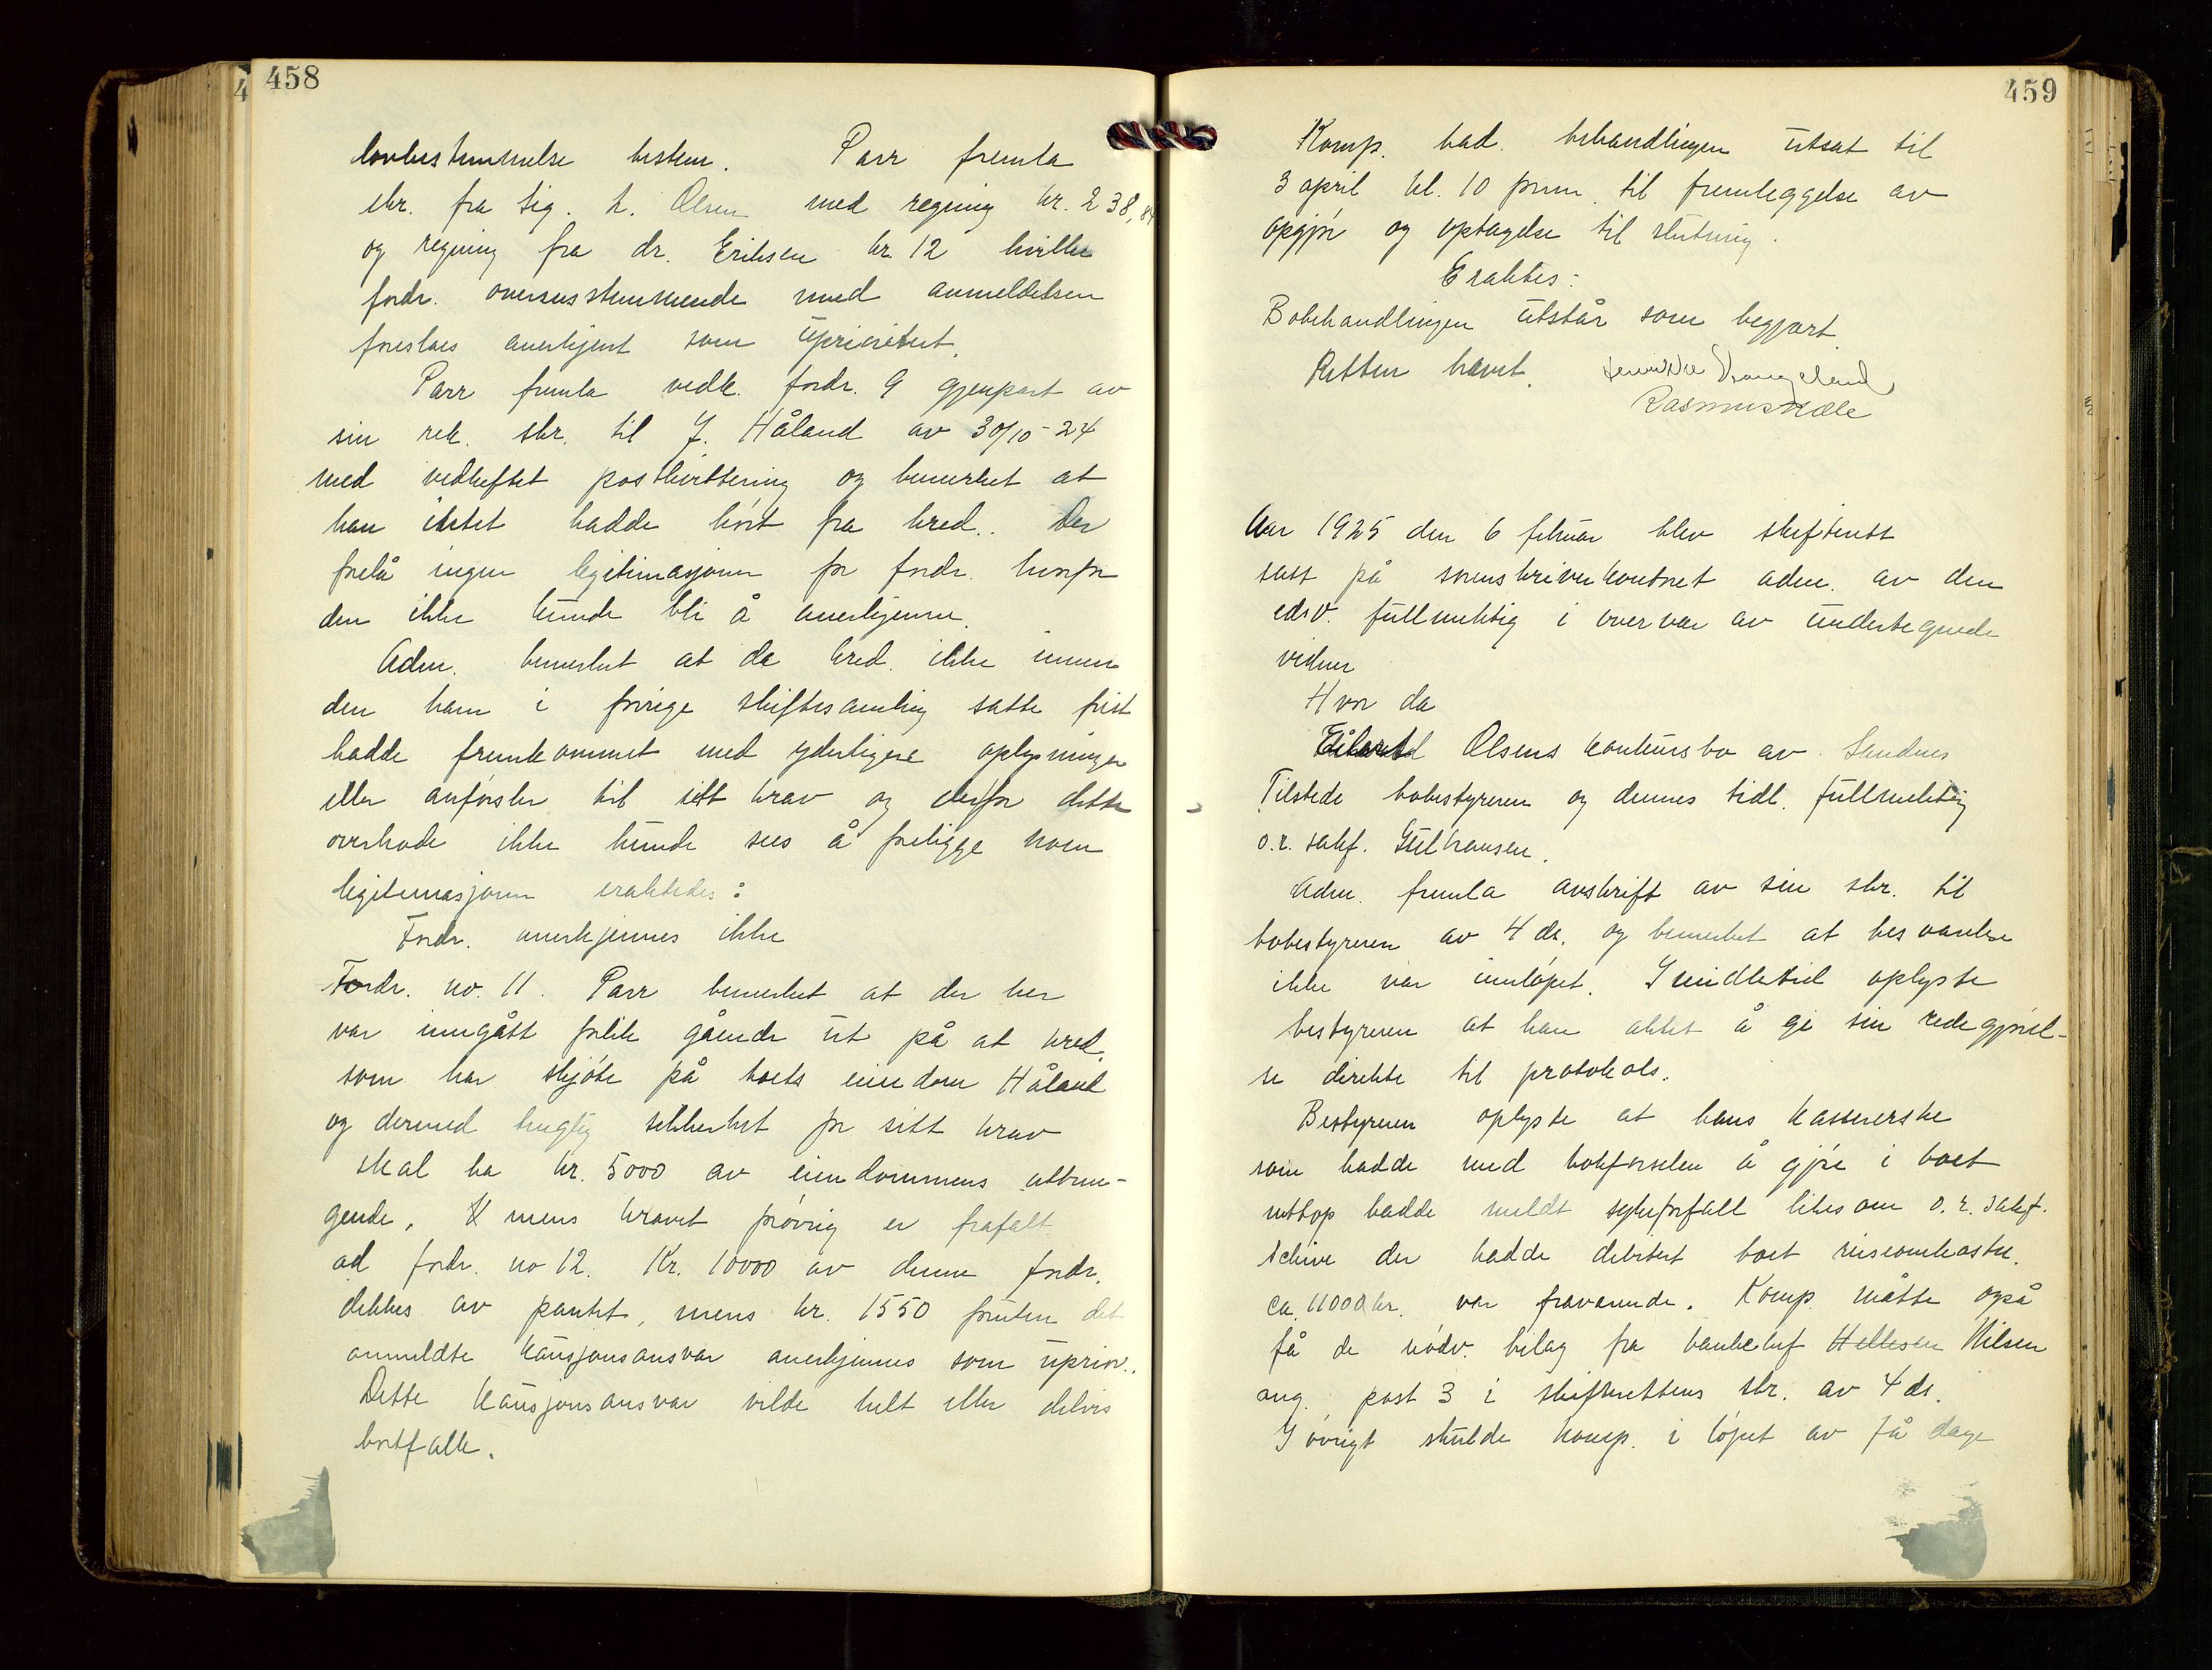 458
lovbestemmelse bestem. Parr fremla
skr. fra sig. L. Olsen med regning kr. 238,84
og regning fra dr. Eriksen kr. 12 hvilke
fordr. overensstemmende med anmeldelsen
foreslaes anerkjent som uprioritert.
Parr fremla vedk. fordr. 9 gjenpart av
sin rek. skr. til J. Håland av 30/10-24
med vedheftet postkvittering og bemerket at
han intet hadde hørt fra kred.. Der
forelå ingen legitimasjoner for fordr. hvorfor
den ikke kunde bli å anerkjenne.
Adm. bemerket at da kred. ikke innen
den ham i forrige skiftesamling satte frist
hadde fremkommet med yderligere oplysninger
eller anførsler til sitt krav og derfor dette
overhode ikke kunde sees å foreligge noen
legitimasjoner eraktedes:
Fordr. anerkjennes ikke
Fordr. no. 11. Parr bemerket at der her
var inngått forlik gående ut på at kred.
som har skjøte på boets eiendom Håland
og dermed trugtig sikkerhet for sitt krav
skal ha kr. 5000 av eiendommens utbrin-
gende, mens kravet forøvrig er frafalt.
ad fordr. no 12. Kr. 10000 av denne fordr.
dekkes av pantet, mens kr. 1550 foruten det
anmeldte kausjonsansvar anerkjennes som uprior..
Dette kausjonsansvar vilde helt eller delvis
bortfalle.
459
Komp. bad behandlingen utsat til
3 april kl. 10 fmm. til fremleggelse av
opgjør og optagelse til slutning.
Eraktes:
Bobehandlingen utstår som begjært.
Retten hævet. Vrangeland
Rasmus Kæle
Aar 1925 den 6 februar blev skifterett
satt på sorenskriverkontoret adm. av den
edsv. fullmektig i overvær av undertegnede
vidner
Hvor da
Olsens konkursbo av Sandnes
Tilstede bobestyreren og dennes tidl. fullmektig
o.r. sakf. Gulhausen.
Adm. fremla avskrift av sin skr. til
bobestyreren av 4 ds. og bemerket at besvarelse
ikke var innløpet. Imidlertid oplyste
bestyreren at han aktet å gi sin redegjørel-
se direkte til protokols.
Bestyreren oplyste at hans kassererske
som hadde med bokførselen å gjøre i boet
nettop hadde meldt sykeforfall likesom o.r. sakf.
Schive der hadde debitert boet reiseomkostn.
ca. 11000 kr. var fraværende. Komp. måtte også
få de nødv. bilag fra bankchef Hellesen Nilsen
ang. post 3 i skifterettens skr. av 4 ds.
I øvrigt skulde komp. i løpet av få dage